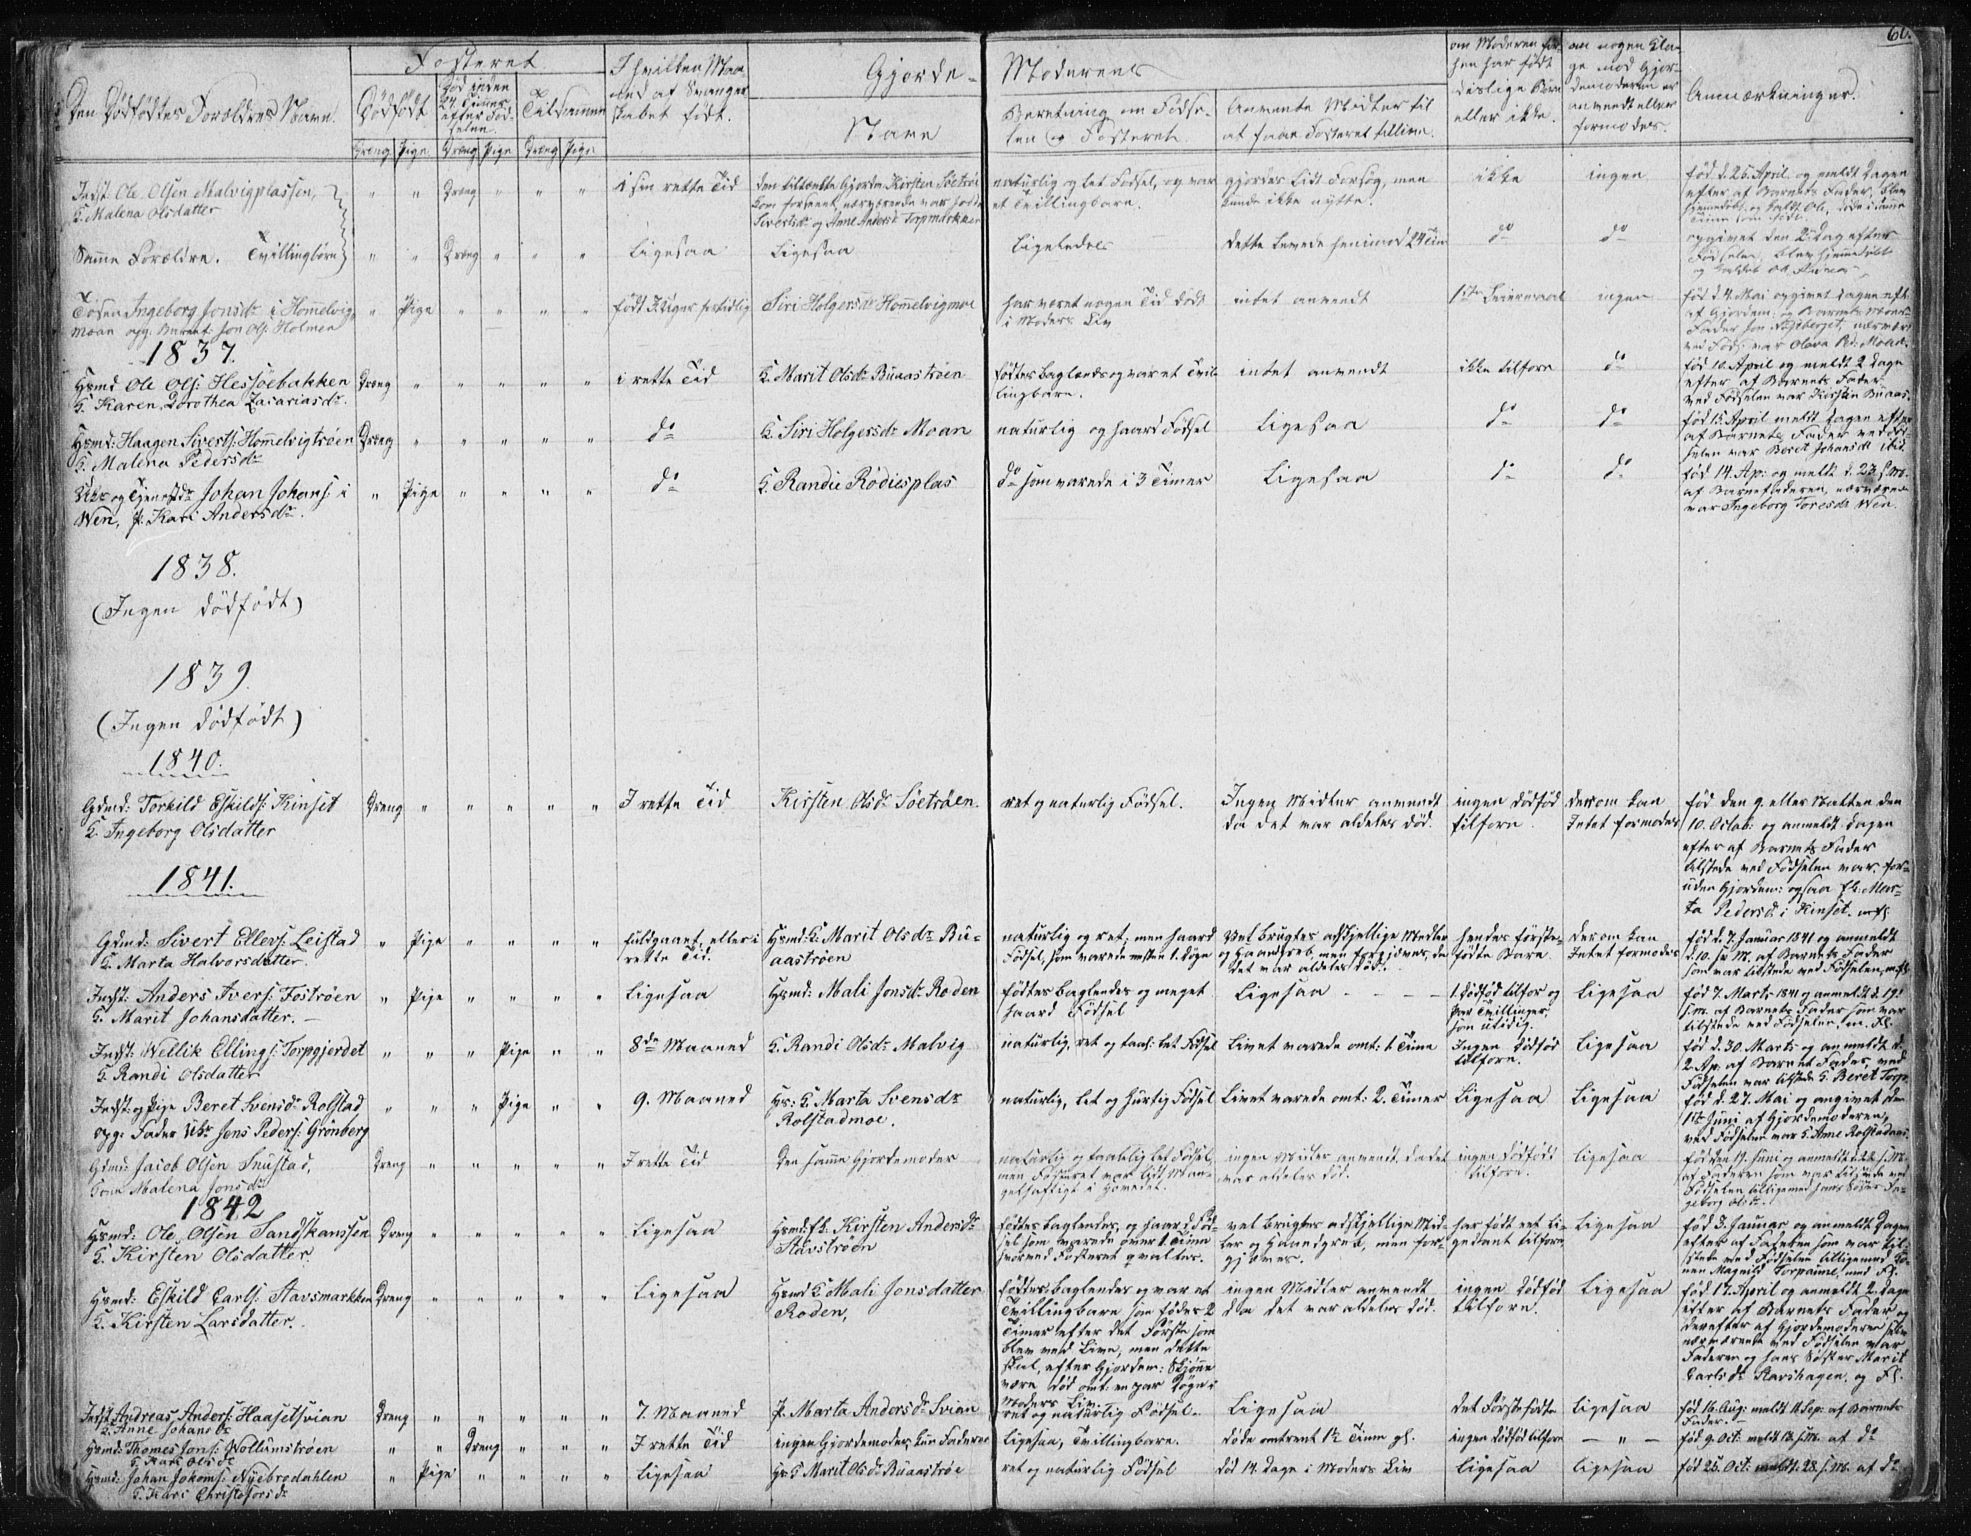 60.
Den Dødfødtes Forældres Navn.
Fosteret
Dødfødt
Død inden
24 Timer
efter Fød-
selen.
Tilsammen
Dreng Pige Dreng Pige Dreng Pige
I hvilken Maa-
ned af Svanger-
skabet født.
Gjorde- Moderens
Navn
Beretning om Fødse-
len og Fosteret
Anvendte Midler til
at faae Fosteret tillive.
om Moderen før-
hen har født
deslige Børn
eller ikke.
om nogen Kla-
ge mod Gjor-
demoderen er
anvendt eller
formodes.
Anmærkninger.
Indst. Ole Olsen Malvigplassen,
K. Malena Olsdatter
" " Dreng " " "
i sin rette Tid
den tiltænkte Gjordm. Kirsten Søetrøe
kom forseent, nærværende var
Sivertsdr og Anne Andersdr Torpmarken
naturlig og let Fødsel, og var
et Tvillingbarn.
gjordes lidt Forsøg, men
kunde ikke nytte.
ikke
ingen
fød d. 26 April og meldt Dagen
efter af Barnets Fader, blev
hjemmedøbt og kaldt Ole, døde i samme
Time som født.
Samme Forældre. Tvillingbørn
" " Dreng " " "
Ligesaa
Ligesaa
Ligeledes
dette levede henimod 24 Tim
do
do
opgivet den 2. Dag efter
Fødselen, blev hjemmedøbt
og kaldet Ole
Tøsen Ingeborg Jonsdr i Hommelvig
moen opg. Barnef. Jon Ols: Holmen
" Pige " " " "
født 3 Uger for tidlig
Siri Holgersdr Hommelvigmoe
har været nogen Tid død
i Moders Liv
intet anvendt
1ste Leiermaal
ingen
fød d. 4. Mai opgivet Dagen eft.
af Gjordem: og Barnets Moders
Fader Jon, nærvær:
ved Føds: var Olava Moan.
1837.
Hsmd Ole Ols: Hessøebakken
K. Karen Dorothea Zacariasdr.
Dreng " " " " "
i rette Tid
K. Marit Olsdr Buaastrøen
fødtes baglends og var et Tvil-
lingbarn.
intet anvendt
ikke tilforn
do
fød 10. April og meldt 2 Dage
efter af Barnets Fader
ved Fødselen var Kirsten Buaas.
Hsmd: Haagen Siverts: Hommelvigtrøen
K. Malena Pedersdr
Dreng " " " " "
do
K. Siri Holgersdr Moan
naturlig og haard Fødsel
Ligesaa
do
do
fød 15. April meldt Dagen efter
af Barnets Fader ved Fød-
selen var Beret Johansdr ibid
Uks og Tjenestdr Johan Johans: i
Wen, P. Kari Andersdr.
" Pige " " " "
do
K. Randie Rødiesplas
do som varede i 3 Timer
Ligesaa
do
do
fød 14. Ap: og meldt d. 23. s. M.
af Barnefaderen, nærværende
var Ingeborg Toresdr Wen.
1838.
(Ingen dødfødt)
1839.
(Ingen dødfødt)
1840.
Gdmd: Torkild Eskilds: Kinset
K. Ingeborg Olsdatter
Dreng " " " " "
I rette Tid
Kirsten Olsdr Søetrøen.
ret og naturlig Fødsel.
Ingen Midler anvendt
da det var aldeles død.
ingen dødfød
tilforn.
Derom kan
Intet formodes
fød den 9. eller Natten den
10. Octob: og anmeldt Dagen
efter af Barnets Fader
tilstede ved Fødselen var for-
uden Gjordem: ogsaa Fl: Mar-
ta Pedersdr i Kinset. m fl.
1841.
Gdmd: Sivert Ellevs: Leistad
K. Marta Halvorsdatter.
" Pige " " " "
fuldgaaet, eller i
rette Tid.
Hsmd: K. Marit Olsdr Bu-
aastrøen
naturlig og ret, men haard
Fødsel, som varede næsten 1. Døgn
Vel brugtes adskjellige Midler
og Haandgreb, men forgjeves, da
det var aldeles dødt.
hendes første-
fødte Barn.
Derom kan
Intet formodes
fød d. 7. Januar 1841 og anmeldt
d. 10. s. M. af Barnets Fader
som var tilstede ved Fødselen, m. fl.
Indst: Anders Ivers: Fostrøen
K. Marit Johansdatter. —
" Pige " " " "
Ligesaa
Hsmd: Mali Jonsdr Roden
fødtes baglendes og meget
haard Fødsel
Ligesaa — — —
1. dødfød tilfor og
Par Tvillinger
som utidig.
Ligesaa
fød 7. Marts 1841 og anmeldt d. 19.
s. M. af Barnets Fader som var
tilstede ved Fødselen m. Fl.
Indst: Wellik Ellings: Torpgjerdet
K. Randi Olsdatter
" " " Pige " "
8de Maaned
K. Randi Olsdr Malvig
naturlig, ret og taal: let Fødsel
Livet varede omt: 1 Time
Ingen dødfød
tilforn.
Ligesaa
fød d. 30. Marts og anmeldt d.
2. Ap. af Barnet Fader, ved
Fødselen var tilstede K. Beret Torp
Indst: og Pige Beret Svensdr Rolstad
opg: Fader Uks Jens Peders: Grønberg
" " " Pige " "
9. Maaned
Hs: K. Marta Svensdr
Rolstadmoe.
naturlig, let og hurtig Fødsel
Livet varede omt: 2. Timer
Ligesaa
Ligesaa
fød d. 27. Mai og angivet den
1ste Juni af Gjordemoderen,
ved Fødselen var K. Ane Rolstadens.
Gdmd: Jacob Olsen Snustad,
Kona Malena Jonsdr
Dreng " " " " "
I rette Tid
Den samme Gjordemoder
naturlig og taalelig let Fødsel,
men Fosteret var lidt Man-
gelhaftigt i Hovedet.
ingen Midler anvendt, da det
var aldeles død.
ingen dødfødt
tilforn.
Ligesaa
fød den 17. Juni og anmeldt d. 22. s. M.
af Faderen som var tilstede ved
Fødselen tilligemed hans Søster In-
geborg Olsdr.
1842
Hsmd: Ole Olsen Sandskanssen
K. Kirsten Olsdatter.
Dreng " " " " "
Ligesaa
Hsmd: Fk. Kirsten Andersdr
Stavstrøen
fødtes baglendes, og haard Fød-
sel som varede over 1. Time
hvorved Fosteret qvaltes.
vel brugtes adskjellige Mid-
ler og Haandgreb, men for-
gjeves.
har født ret Li-
gedant tilforn
Ligesaa
fød 3. Januar og anmeldt Dagen
efter af Faderen som var til-
stede ved Fødselen tilligemed Ko-
nen Magnild Torpaune, med Fl.
Hsmd: Eskild Carls: Stavsmarkken
K. Kirsten Larsdatter.
Dreng " " " " "
Ligesaa
Hsmd K Mali Jonsdatter
Roden,
fødtes baglendes og var et
Tvillingbarn som fødes 2
Timer efter det Første som
blev ved Live, men dette
skal, efter Gjordem: Skjønne
være død omt: en par Døgn i
Moders Liv.
ingen Midler anvendt,
da det var aldeles død.
ingen dødfød
tilforn.
Ligesaa
fød 17. April og anmeldt 2. Dage
efter af Barnets Fader og
derefter af Gjordemoderen selv
nærværende ved Fødselen var
Faderen og hans Søster Marit
Carlsdr Karshagen, og Fl.
Indst. Andreas Anders: Haasetsvian
K. Anne Johansdr
Dreng " " " " "
7. Maaned
P. Marta Andersdr Svian
ret og naturlig Fødsel.
Ligesaa
det Førstefødte
Ligesaa
fød 16. Aug: meldt 11 Sep: af Barnets
Fader. —
Hsmd: Thomes Jons: Wollumstrøen
K. Kari Olsdr
" " Dreng " " "
I rette Tid
ingen Gjordemoder, kun Faderen
Ligesaa, Tvillingbarn.
Døde omtrent 1½ Time gl.
ingen dødfød tilforn
— " —
fød 9. Oct: meldt 12. s. M. af do
Hsmd: Johan Johans: Nyebrodahlen
K. Kari Christofersdr
" Pige " " " "
Ligesaa
Hs K Marit Olsdr Buaastrøe
ret og naturlig Fødsel
død 14. Dage i Moders Liv
Ligesaa
Ligesaa
fød 25. Oct: meldt 28. s. M. af do